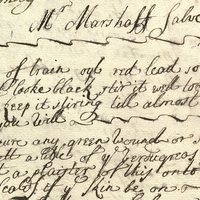 Mr Marshall Salve
of train oyl red lead
looke black stir it well
keep it stiring till almost
you will
cure any green wound or
a litle of yr verdugreas
a plaister of this onto
of yr skin be on